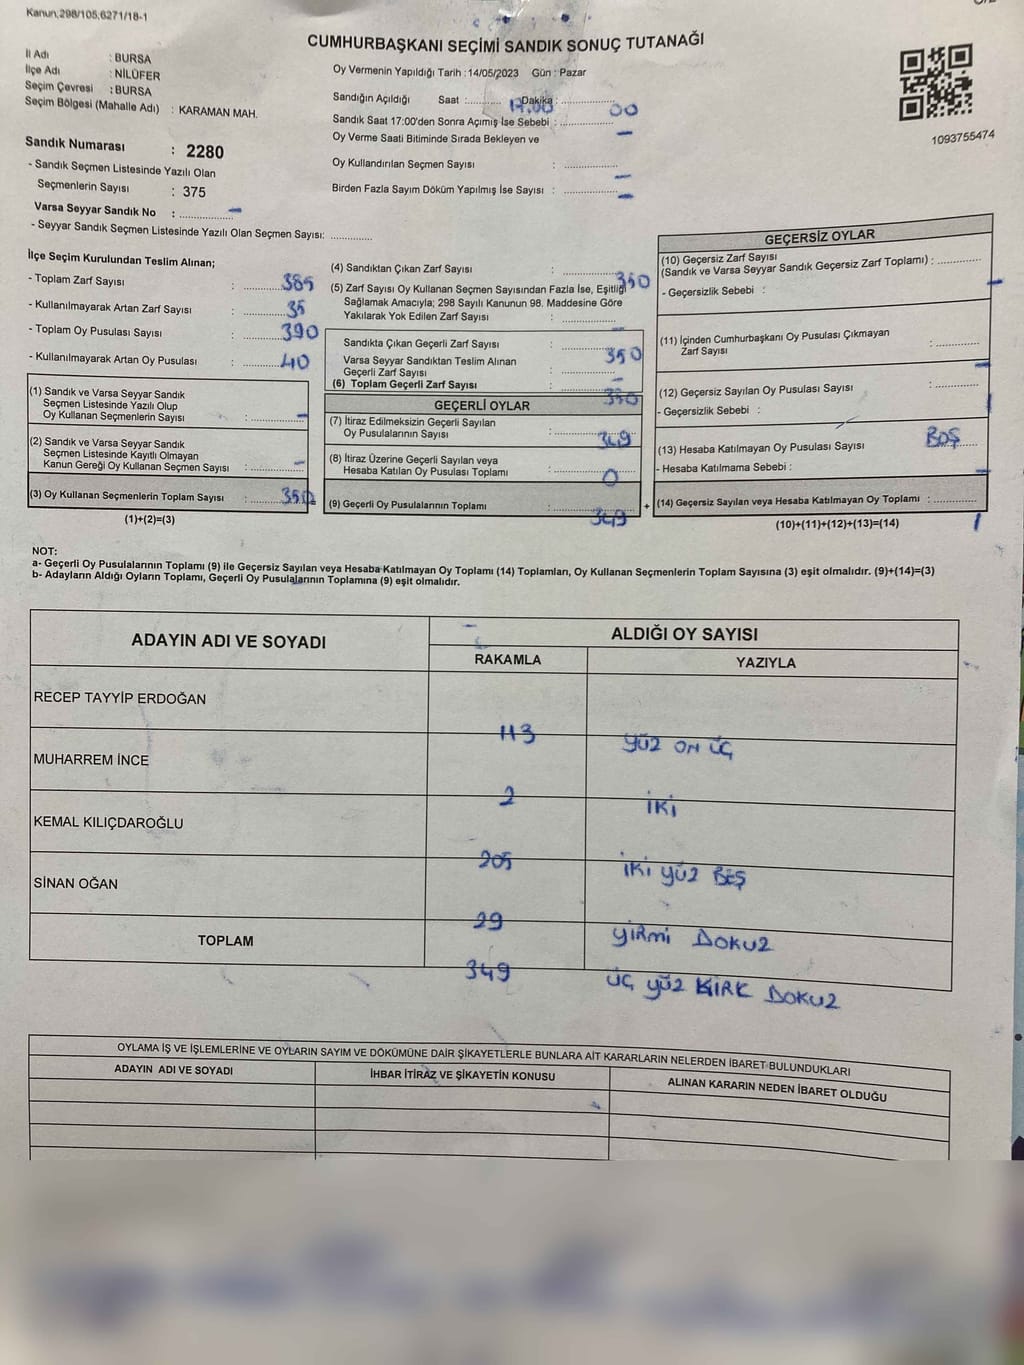 Kanun,298/105,6271/18-1
CUMHURBAŞKANI SEÇİMİ SANDIK SONUÇ TUTANAĞI
İl Adı : BURSA
İlçe Adı : NİLÜFER
Seçim Çevresi : BURSA
Seçim Bölgesi (Mahalle Adı) : KARAMAN MAH.
Sandık Numarası : 2280
- Sandık Seçmen Listesinde Yazılı Olan
Seçmenlerin Sayısı : 375
Varsa Seyyar Sandık No : -
- Seyyar Sandık Seçmen Listesinde Yazılı Olan Seçmen Sayısı:
Oy Vermenin Yapıldığı Tarih : 14/05/2023 Gün : Pazar
Sandığın Açıldığı Saat : 17.00 Dakika : 00
Sandık Saat 17:00'den Sonra Açımış İse Sebebi : -
Oy Verme Saati Bitiminde Sırada Bekleyen ve
Oy Kullandırılan Seçmen Sayısı : -
Birden Fazla Sayım Döküm Yapılmış İse Sayısı : -
1093755474
İlçe Seçim Kurulundan Teslim Alınan;
- Toplam Zarf Sayısı : 385
- Kullanılmayarak Artan Zarf Sayısı : 35
- Toplam Oy Pusulası Sayısı : 390
- Kullanılmayarak Artan Oy Pusulası : 40
(1) Sandık ve Varsa Seyyar Sandık
Seçmen Listesinde Yazılı Olup
Oy Kullanan Seçmenlerin Sayısı : -
(2) Sandık ve Varsa Seyyar Sandık
Seçmen Listesinde Kayıtlı Olmayan
Kanun Gereği Oy Kullanan Seçmen Sayısı : -
(3) Oy Kullanan Seçmenlerin Toplam Sayısı : 350
(1)+(2)=(3)
(4) Sandıktan Çıkan Zarf Sayısı : 350
(5) Zarf Sayısı Oy Kullanan Seçmen Sayısından Fazla İse, Eşitliği
Sağlamak Amacıyla; 298 Sayılı Kanunun 98. Maddesine Göre
Yakılarak Yok Edilen Zarf Sayısı : -
Sandıkta Çıkan Geçerli Zarf Sayısı : 350
Varsa Seyyar Sandıktan Teslim Alınan
Geçerli Zarf Sayısı : -
(6) Toplam Geçerli Zarf Sayısı : 350
GEÇERLİ OYLAR
(7) İtiraz Edilmeksizin Geçerli Sayılan
Oy Pusulalarının Sayısı : 349
(8) İtiraz Üzerine Geçerli Sayılan veya
Hesaba Katılan Oy Pusulası Toplamı : 0
(9) Geçerli Oy Pusulalarının Toplamı : 349
+
GEÇERSİZ OYLAR
(10) Geçersiz Zarf Sayısı
(Sandık ve Varsa Seyyar Sandık Geçersiz Zarf Toplamı) : -
- Geçersizlik Sebebi :
(11) İçinden Cumhurbaşkanı Oy Pusulası Çıkmayan
Zarf Sayısı : -
(12) Geçersiz Sayılan Oy Pusulası Sayısı : 1
- Geçersizlik Sebebi : BOŞ
(13) Hesaba Katılmayan Oy Pusulası Sayısı : -
- Hesaba Katılmama Sebebi :
(14) Geçersiz Sayılan veya Hesaba Katılmayan Oy Toplamı : 1
(10)+(11)+(12)+(13)=(14)
NOT:
a- Geçerli Oy Pusulalarının Toplamı (9) ile Geçersiz Sayılan veya Hesaba Katılmayan Oy Toplamı (14) Toplamları, Oy Kullanan Seçmenlerin Toplam Sayısına (3) eşit olmalıdır. (9)+(14)=(3)
b- Adayların Aldığı Oyların Toplamı, Geçerli Oy Pusulalarının Toplamına (9) eşit olmalıdır.
ADAYIN ADI VE SOYADI ALDIĞI OY SAYISI
RAKAMLA YAZIYLA
RECEP TAYYİP ERDOĞAN 113 YÜZ ON ÜÇ
MUHARREM İNCE 2 İKİ
KEMAL KILIÇDAROĞLU 205 İKİ YÜZ BEŞ
SİNAN OĞAN 29 YİRMİ DOKUZ
TOPLAM 349 ÜÇ YÜZ KIRK DOKUZ
OYLAMA İŞ VE İŞLEMLERİNE VE OYLARIN SAYIM VE DÖKÜMÜNE DAİR ŞİKAYETLERLE BUNLARA AİT KARARLARIN NELERDEN İBARET BULUNDUKLARI
ADAYIN ADI VE SOYADI İHBAR İTİRAZ VE ŞİKAYETİN KONUSU ALINAN KARARIN NEDEN İBARET OLDUĞU